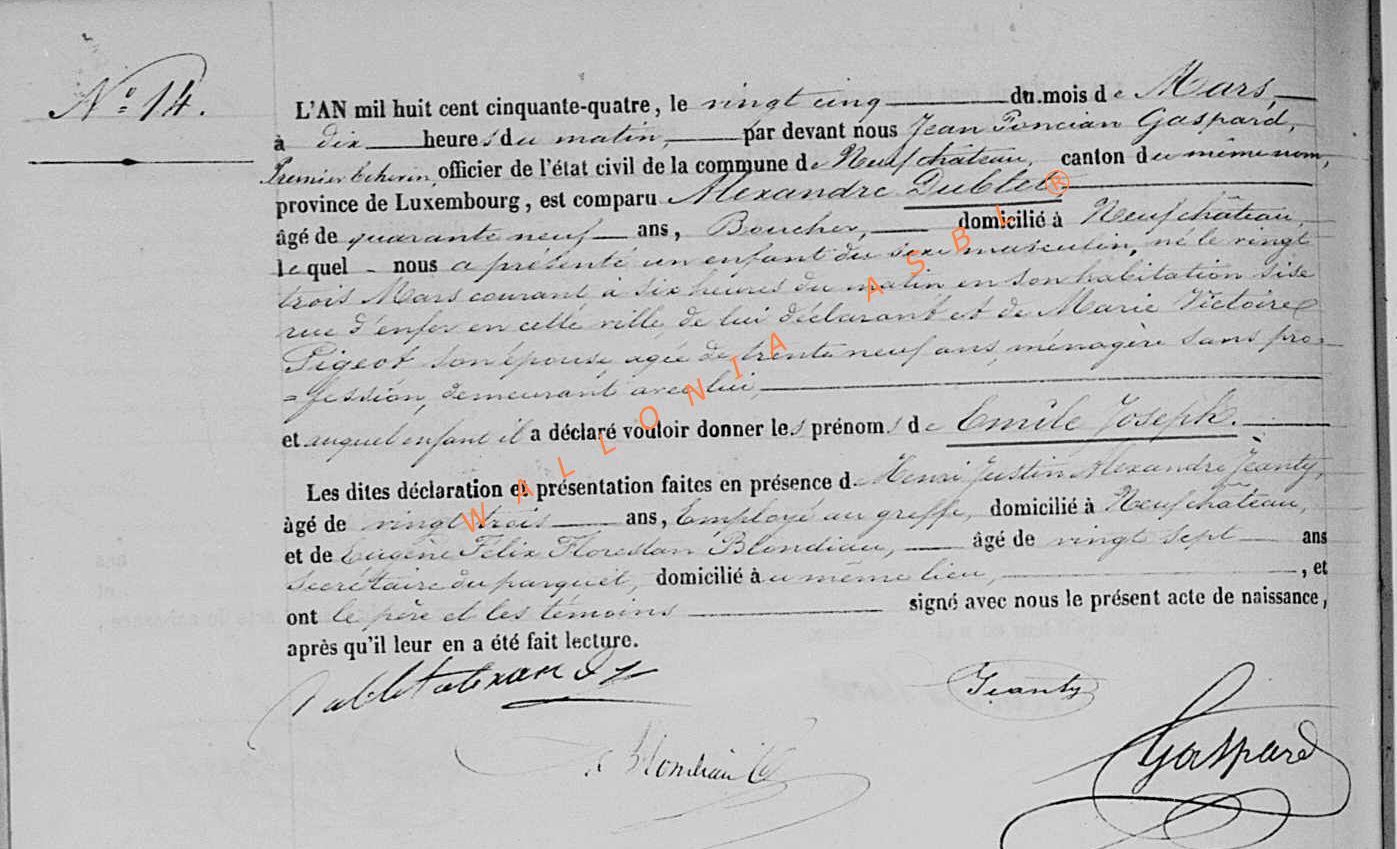 N.º 14.
L'AN mil huit cent cinquante-quatre, le vingt cinq du mois de Mars,
à dix heures du matin, par devant nous Jean Poncian Gaspard,
Premier Echevin, officier de l'état civil de la commune de Neufchâteau, canton du même nom,
province de Luxembourg, est comparu Alexandre Dublet
âgé de quarante neuf ans, Boucher, domicilié à Neufchâteau,
lequel nous a présenté un enfant du sexe masculin, né le vingt
trois Mars courant à six heures du matin en son habitation sise
rue d'enfer en cette ville, de lui déclarant et de Marie Victoire
Pigeot son épouse, agée de trente neuf ans, ménagère sans pro-
=fession, demeurant avec lui,
et auquel enfant il a déclaré vouloir donner les prénoms de Emile Joseph.
Les dites déclaration et présentation faites en présence de Henri Justin Alexandre Jeanty,
âgé de vingt trois ans, Employé au greffe, domicilié à Neufchâteau,
et de Eugène Félix Florestan Blondiau, âgé de vingt sept ans
secrétaire du parquet, domicilié au même lieu, , et
ont le père et les témoins signé avec nous le présent acte de naissance,
après qu'il leur en a été fait lecture.
Jeanty
Blondiau
Gaspard
WALLONIA ASBL®